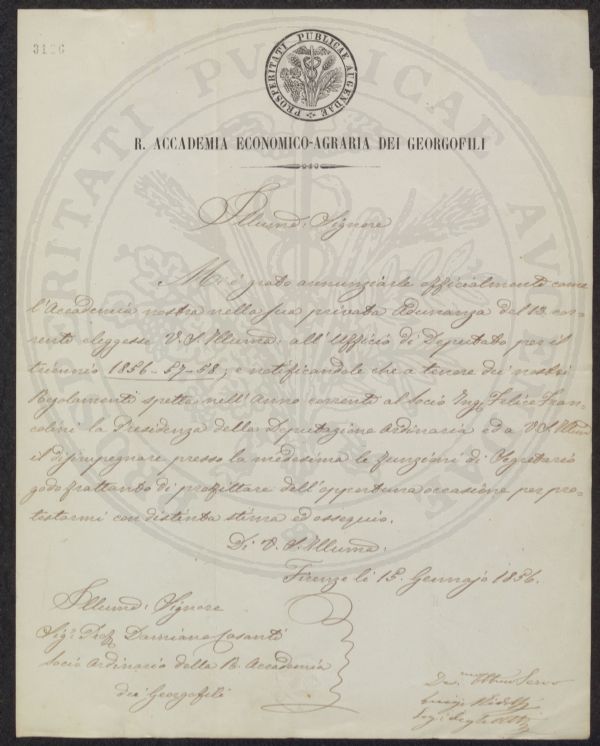 3126
PROSPERITATI PUBLICAE AUGENDAE
R. ACCADEMIA ECONOMICO-AGRARIA DEI GEORGOFILI
Illumo: Signore
Mi è grato annunziarle officialmente come
l'Accademia nostra nella sua privata Adunanza del 13 cor-
rente eleggesse V. S. Illuma. all'Ufficio di Deputato per il
triennio 1856-57-58; e notificandole che a tenore dei nostri
Regolamenti spetta nell'Anno corrente al Socio Ingr. Felice Fran-
colini la Presidenza della Deputazione Ordinaria ed a V. S. Illuma
il disimpegnare presso la medesima le funzioni di Segretario
godo frattanto di profittare dell'opportuna occasione per pro-
testarmi con distinta stima ed ossequio.
Di V. S. Illuma.
Firenze li 15. Gennajo 1856.
Illumo: Signore
Sigr. Prof. Damiano Casanti
Socio Ordinario della R. Accademia
dei Georgofili
Devmo. Obbmo Servo
Luigi Ridolfi
Segr. degli Atti